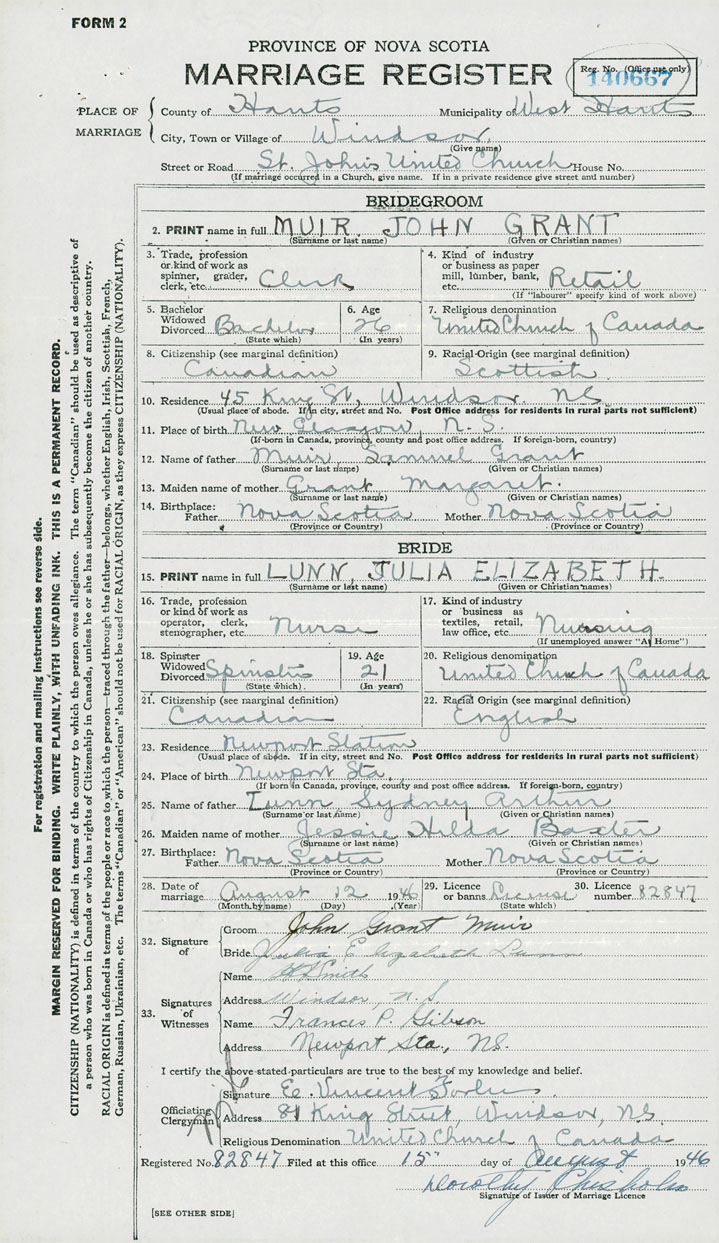 FORM 2
PROVINCE OF NOVA SCOTIA
MARRIAGE REGISTER
Reg. No. (Office use only)
140667
PLACE OF MARRIAGE
County of Hants Municipality of West Hants
City, Town or Village of Windsor
(Give name)
Street or Road St. John's United Church House No.
(If marriage occurred in a Church, give name. If in a private residence give street and number)
BRIDEGROOM
2. PRINT name in full MUIR, JOHN GRANT
(Surname or last name) (Given or Christian names)
3. Trade, profession or kind of work as spinner, grader, clerk, etc. Clerk
4. Kind of industry or business as paper mill, lumber, bank, etc. Retail
(If "labourer" specify kind of work above)
5. Bachelor Widowed Divorced Bachelor
(State which)
6. Age 26
(In years)
7. Religious denomination
United Church of Canada
8. Citizenship (see marginal definition)
Canadian
9. Racial Origin (see marginal definition)
Scottish
10. Residence 45 King St, Windsor NS
(Usual place of abode. If in city, street and No. Post Office address for residents in rural parts not sufficient)
11. Place of birth New Glasgow, N.S.
(If born in Canada, province, county and post office address. If foreign-born, country)
12. Name of father Muir, Samuel Grant
(Surname or last name) (Given or Christian names)
13. Maiden name of mother Grant Margaret.
(Surname or last name) (Given or Christian names)
14. Birthplace: Father Nova Scotia Mother Nova Scotia
(Province or Country) (Province or Country)
BRIDE
15. PRINT name in full LUNN, JULIA ELIZABETH.
(Surname or last name) (Given or Christian names)
16. Trade, profession or kind of work as operator, clerk, stenographer, etc. Nurse
17. Kind of industry or business as textiles, retail, law office, etc. Nursing
(If unemployed answer "At Home")
18. Spinster Widowed Divorced Spinster
(State which)
19. Age 21
(In years)
20. Religious denomination
United Church of Canada
21. Citizenship (see marginal definition)
Canadian
22. Racial Origin (see marginal definition)
English
23. Residence Newport Station
(Usual place of abode. If in city, street and No. Post Office address for residents in rural parts not sufficient)
24. Place of birth Newport Sta.
(If born in Canada, province, county and post office address. If foreign-born, country)
25. Name of father Lunn Sydney Arthur
(Surname or last name) (Given or Christian names)
26. Maiden name of mother Jessie Hilda Baxter
(Surname or last name) (Given or Christian names)
27. Birthplace: Father Nova Scotia Mother Nova Scotia
(Province or Country) (Province or Country)
28. Date of marriage August 12 1946
(Month by name) (Day) (Year)
29. Licence or banns License
(State which)
30. Licence number 82847
32. Signature of
Groom John Grant Muir
Bride Julia Elizabeth Lunn
33. Signatures of Witnesses
Name Smith
Address Windsor, N.S.
Name Frances P. Gibson
Address Newport Sta., NS.
I certify the above-stated particulars are true to the best of my knowledge and belief.
Officiating Clergyman
Signature E. Vincent
Address 81 King Street, Windsor, N.S.
Religious Denomination United Church of Canada
Registered No. 82847 Filed at this office 15" day of August 1946
Dorothy Chisholm
Signature of Issuer of Marriage Licence
[SEE OTHER SIDE]
For registration and mailing instructions see reverse side.
MARGIN RESERVED FOR BINDING. WRITE PLAINLY, WITH UNFADING INK. THIS IS A PERMANENT RECORD.
CITIZENSHIP (NATIONALITY) is defined in terms of the country to which the person owes allegiance. The term "Canadian" should be used as descriptive of
a person who was born in Canada or who has rights of Citizenship in Canada, unless he or she has subsequently become the citizen of another country.
RACIAL ORIGIN is defined in terms of the people or race to which the person—traced through the father—belongs, whether English, Irish, Scottish, French,
German, Russian, Ukrainian, etc. The terms "Canadian" or "American" should not be used for RACIAL ORIGIN, as they express CITIZENSHIP (NATIONALITY).